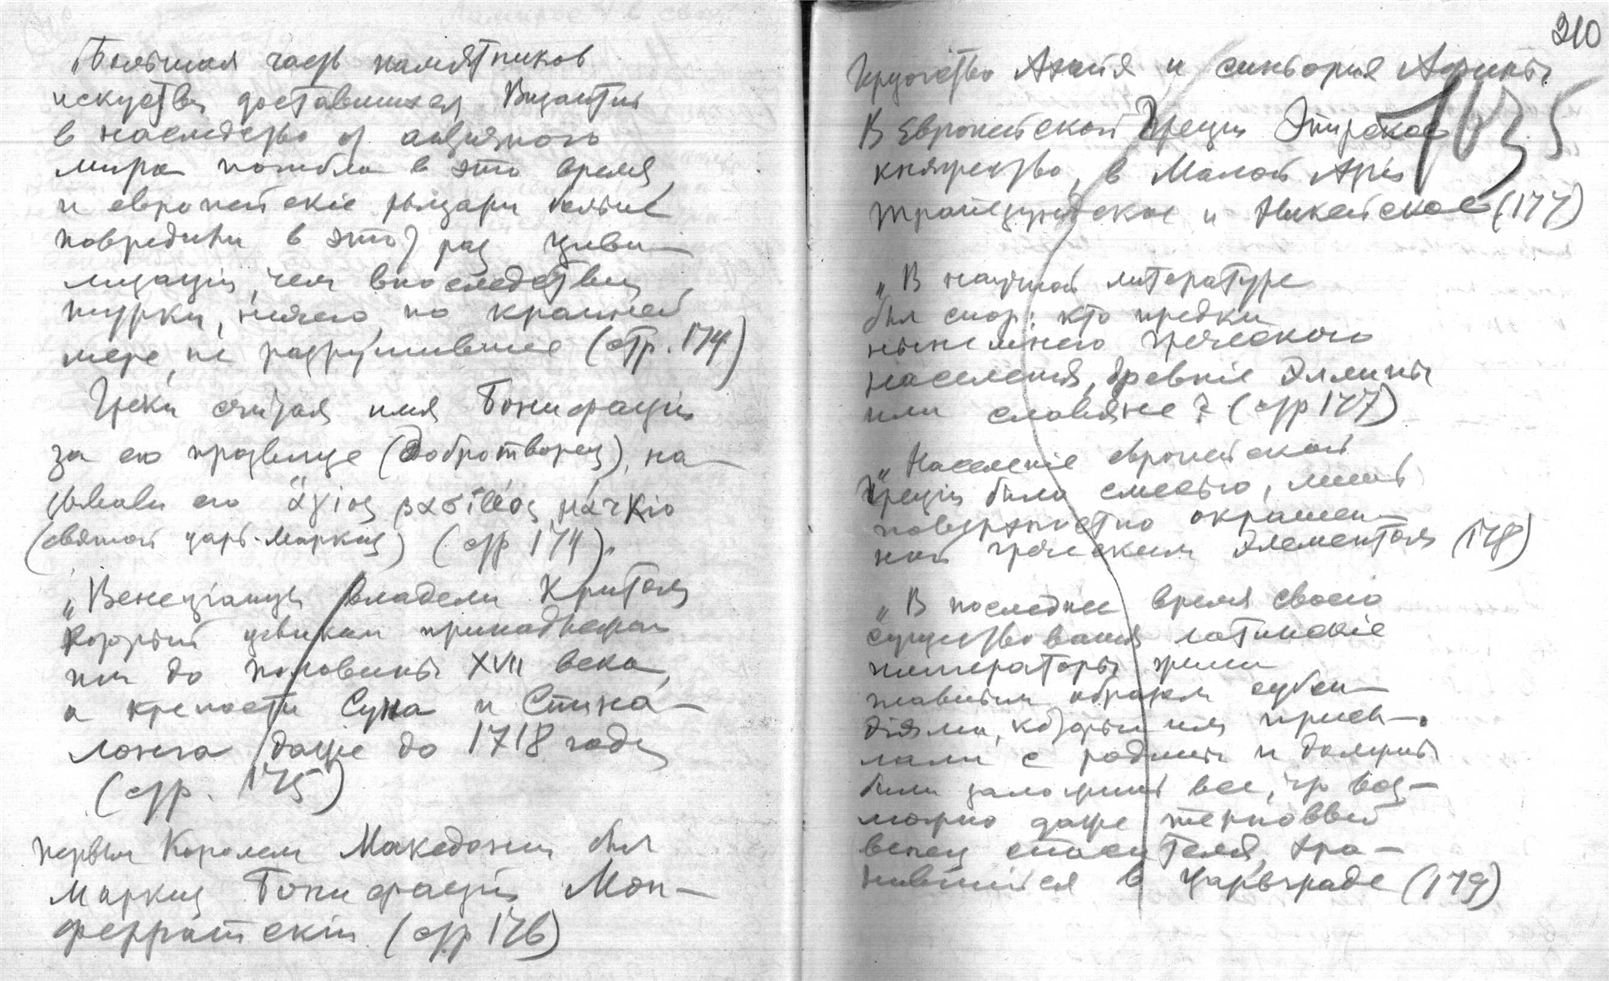 „Большая часть памятников
искуства доставшихся Византии
в наследство от античного
мира погибла в это время
и европейскіе рыцари больше
повредили в этот раз циви-
лизаціи, чем впоследствии
турки, ничего, по крайней
мере, не разрушившие (стр. 174)
Греки считая имя Бонифаціи
за его прозвище (Добротворец), на-
зывали его ἅγιος βασιλεύς μάρκιο
(святой царь-маркиз) (стр 174).
„Венеціанцы владели Критом
который целиком принадлежал
им до половины XVII века,
а крепости Суда и Спина-
лонга даже до 1718 года
(стр. 175)
первым Королем Македонии был
маркиз Бонифацій Мон-
ферратскій (стр 176)
210
Ахаія и синьория Афины.
1635
В Европейской Греции Эпирское
княжество, в Малой Азіи
Трапезундское и Никейское (177)
„В научной литературе
был спор: кто предки
нынешнего греческого
населения, древніе Эллины
или славяне? (стр 177)
„Населеніе европейской
Греціи было смесью, лишь
поверхностно окрашен-
ной греческим элементом (178)
„В последнее время своего
существования латинскіе
императоры жили
главным образом субси-
діями, которыя им присы-
лали с родины и должны
были заложить все, что воз-
можно даже терновый
венец спасителя, хра-
нившійся в Царьграде (179)